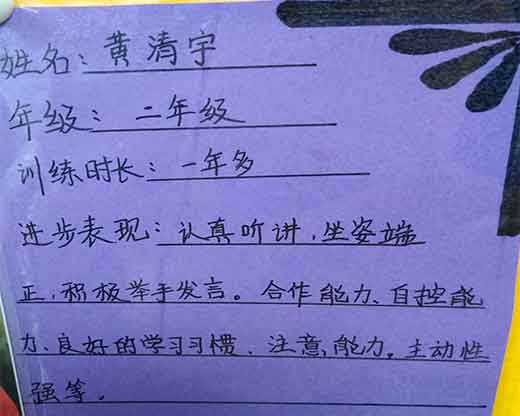 姓名：黄清宇
年级：二年级
训练时长：一年多
进步表现：认真听讲，坐姿端
正，积极举手发言。合作能力、自控能
力、良好的学习习惯、注意能力。主动性
强等。